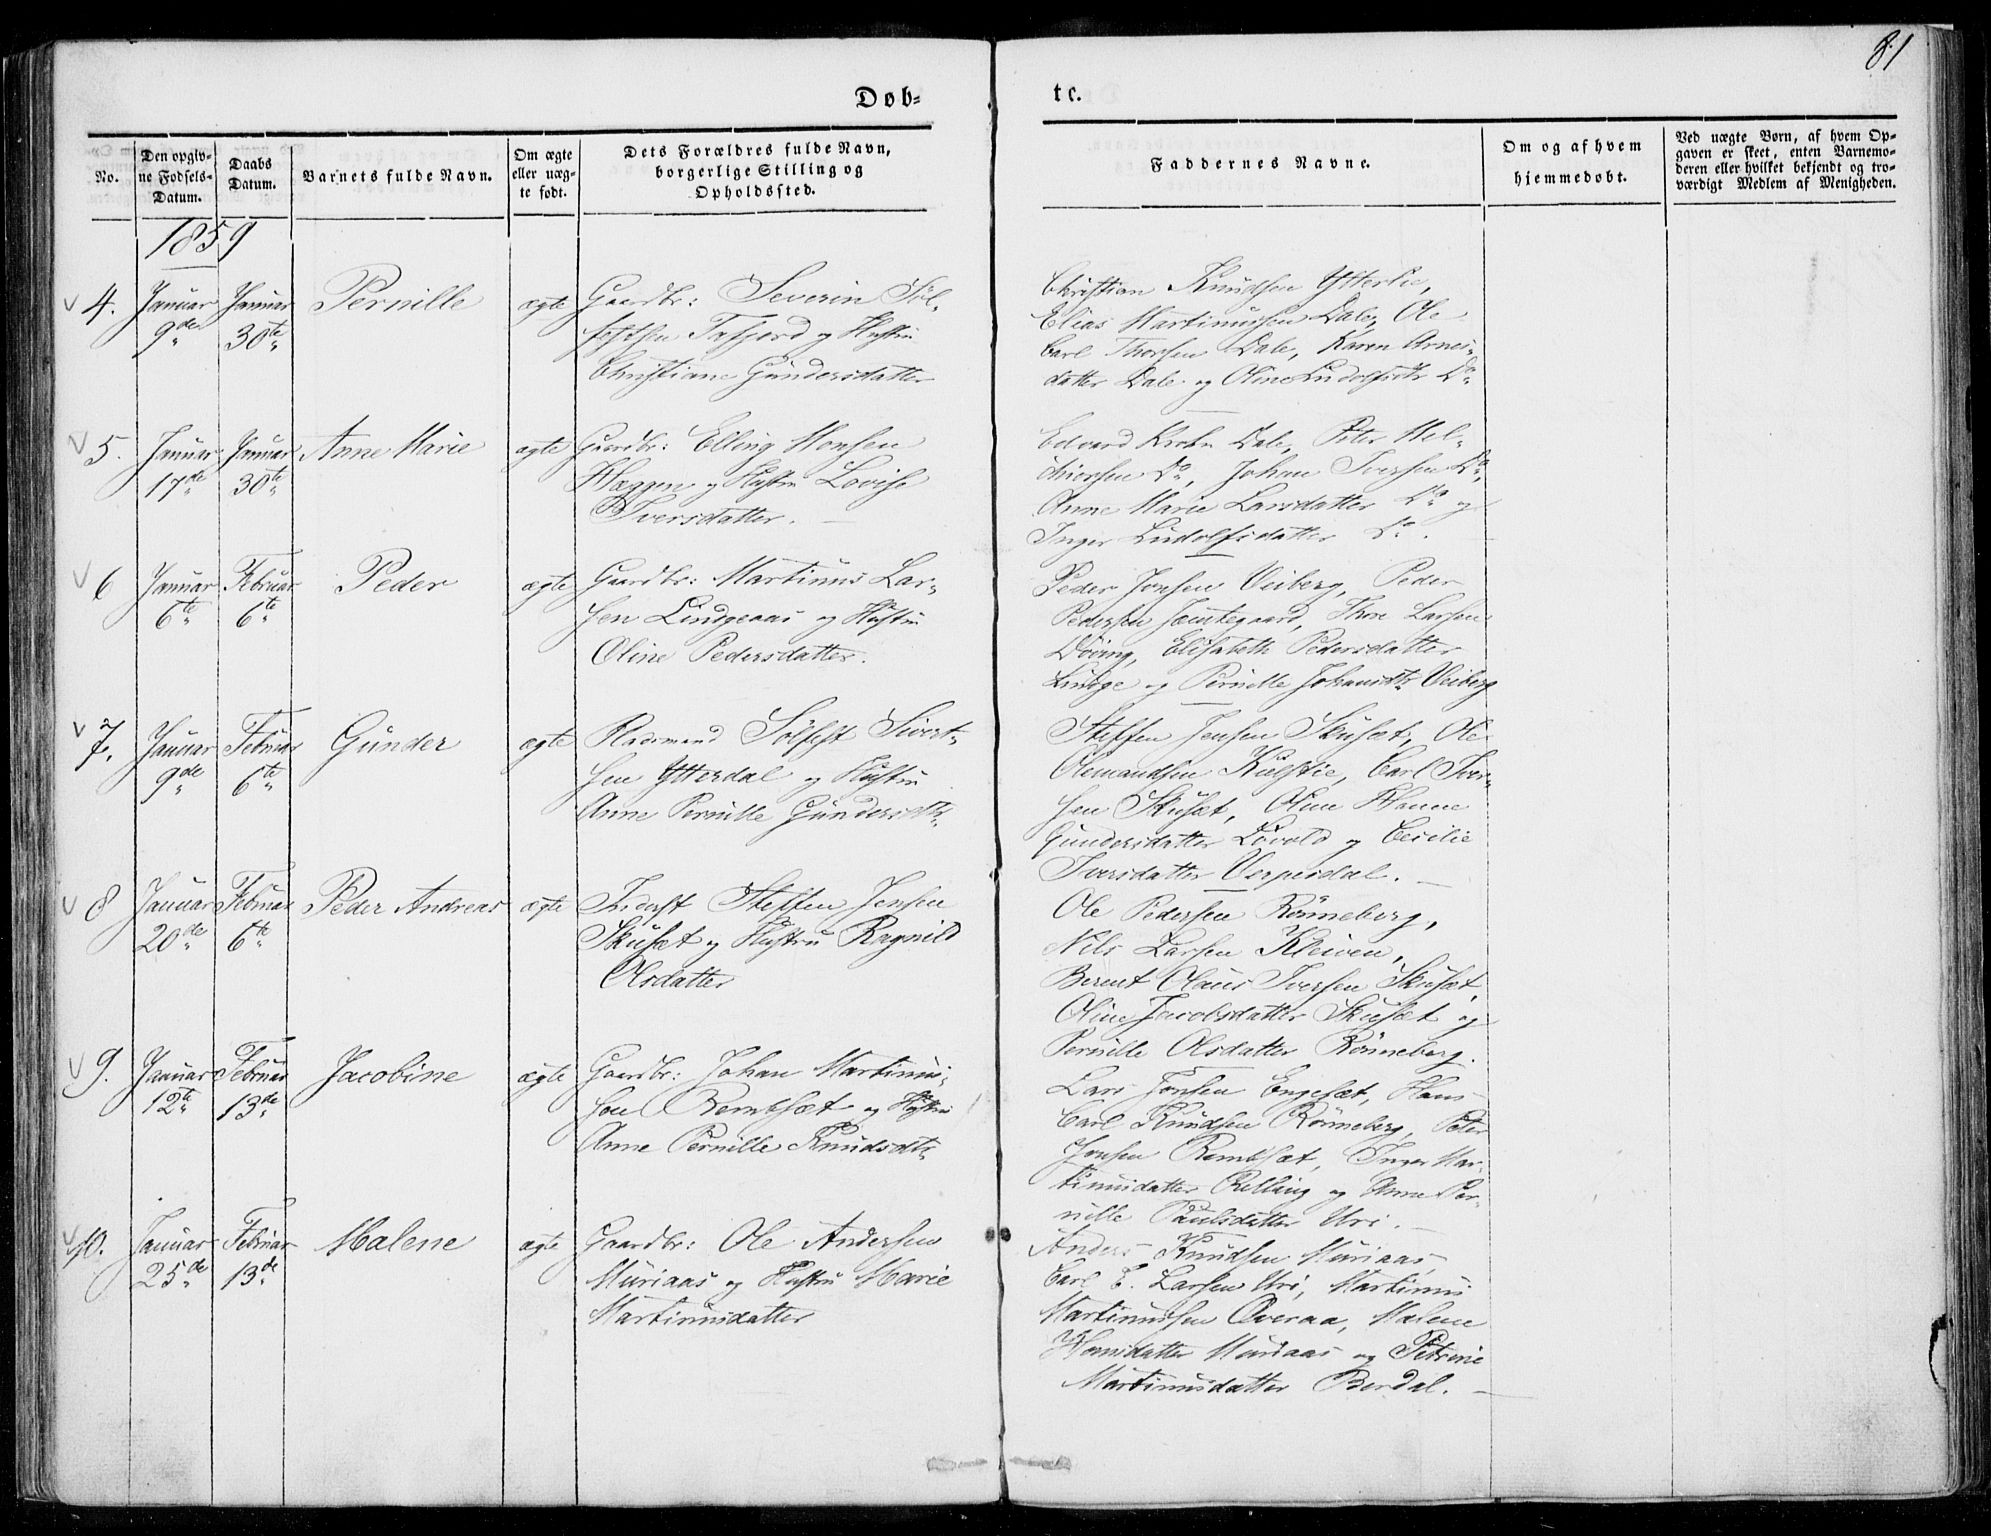 81
Døb-
tc.
No.
Den opgiv-
ne Fødsels-
Datum.
Daabs
Datum.
Barnets fulde Navn.
Om ægte
eller uæg-
te født.
Dets Forældres fulde Navn,
borgerlige Stilling og
Opholdssted.
Faddernes Navne.
Om og af hvem
hjemmedøbt.
Ved uægte Børn, af hvem Op-
gaven er skeet, enten Barnemo-
deren eller hvilket bekjendt og tro-
værdigt Medlem af Menigheden.
1859
4. Januar Januar Pernille ægte Gaardbr: Severin Søl-
9de 30te festsen Tafjord og Hustru
Christiane Gundersdatter
Christian Knudsen Ytterlie,
Elias Martinussen Dale, Ole
Carl Thorsen Dale, Karen Arnes-
datter Dale og Oline Ludolfsdtr Do
5. Januar Januar Anne Marie ægte Gaardbr: Elling Monsen
17de 30te Heggen og Hustru Lovise
Iversdatter.
Edvard Krohn Dale, Peter Mel-
chiorsen Do, Johan Iversen Do,
Anne Marie Larsdatter Do og
Inger Ludolfsdatter Do.
6 Januar Februar Peder ægte Gaardbr: Martinus Lar-
6te 6te sen Lindgeaas og Hustru
Oline Pedersdatter.
Peder Jonsen Veiberg, Peder
Pedersen Jemtegaard, Thore Larsen
Døving, Elisabeth Pedersdatter
Linge og Pernille Johansdtr Veiberg
7. Januar Februar Gunder ægte Pladsmand Sølfest Sivert-
9de 6te sen Ytterdal og Hustru
Anne Pernille Gundersdtr.
Steffen Jensen Skusæt, Ole
Olemandsen Kulstie, Carl Iver-
sen Skusæt, Oline Hanne
Gundersdatter Løvold og Cecilie
Iversdatter Verpesdal.
8 Januar Februar Peder Andreas ægte Inderst Steffen Jensen
20de 6te Skusæt og Hustru Ragnild
Olsdatter
Ole Pedersen Rønneberg,
Nils Larsen Kleiven,
Berent Olaus Iversen Skusæt,
Oline Jacobsdatter Skusæt og
Pernille Olsdatter Rønneberg.
9. Januar Februar Jacobine ægte Gaardbr: Johan Martinus-
12te 13de sen Rembsæt og Hustru
Anne Pernille Knudsdtr.
Lars Jonsen Engesæt, Hans
Carl Knudsen Rønneberg, Peter
Jonsen Rembsæt, Inger Mar-
tinusdatter Relling og Anne Per-
nille Paulsdatter Uri.
10. Januar Februar Malene ægte Gaardbr: Ole Andersen
25de 13de Muriaas og Hustru Marie
Martinusdatter
Anders Knudsen Muriaas,
Carl E. Larsen Uri, Martinus
Martinussen Overaa, Malene
Hansdatter Muriaas og Petrine
Martinusdatter Berdal.